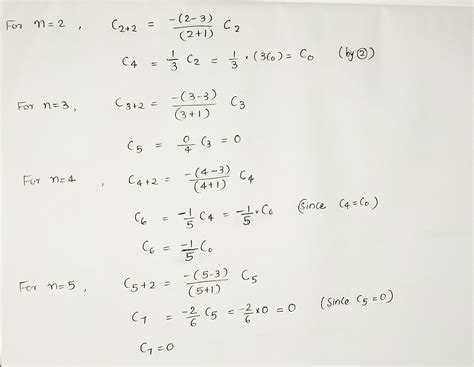 For n=2 , C₂₊₂ = -(2-3)/(2+1) C₂
C₄ = 1/3 C₂ = 1/3 · (3C₀) = C₀ (by ②)
For n=3, C₃₊₂ = -(3-3)/(3+1) C₃
C₅ = 0/4 C₃ = 0
For n=4 , C₄₊₂ = -(4-3)/(4+1) C₄
C₆ = -1/5 C₄ = -1/5 × C₀ (Since C₄=C₀)
C₆ = -1/5 C₀
For n=5 , C₅₊₂ = -(5-3)/(5+1) C₅
C₇ = -2/6 C₅ = -2/6 × 0 = 0 (Since C₅=0)
C₇=0